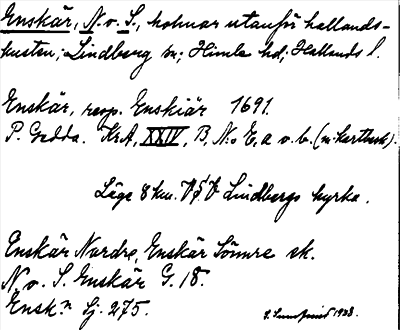 Enskär, N. o. S., holmar utanför hallands-
kusten; Lindberg sn; Himle hd; Hallands l.
Enskär, resp. Enskiär 1691.
P. Gedda. KrA, XXIV, B, N:o E, a o. b. (n. kartbeck).
Läge 8 km. V Lindbergs kyrka.
Enskär Nordre, Enskär Sömre sk.
N. o. S. Enskär G. 18.
Ensk.n Sj. 275.
1928.